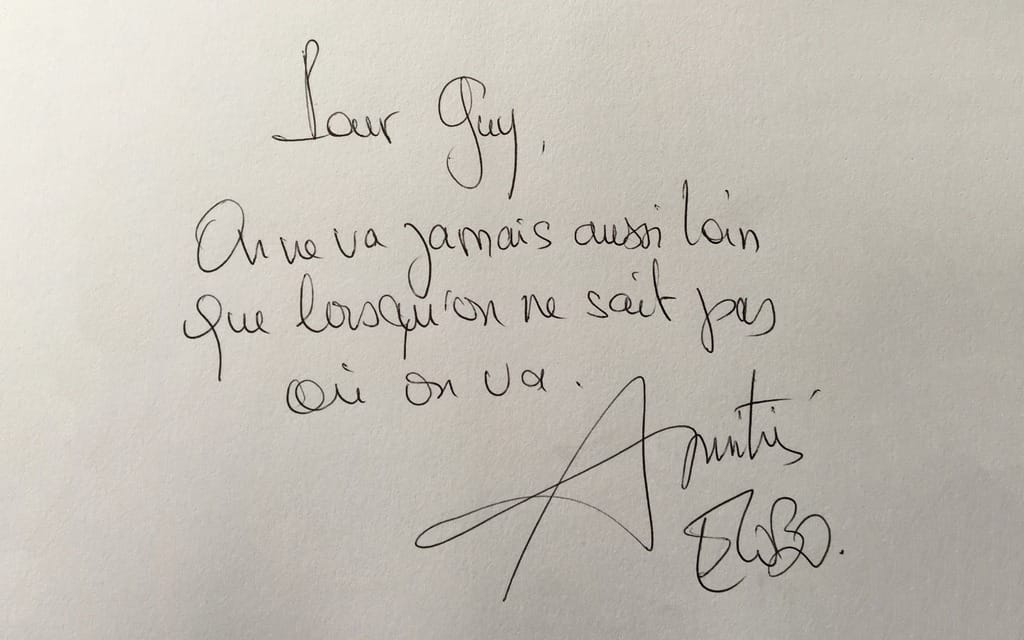 Pour Guy,
On ne va jamais aussi loin
que lorsqu'on ne sait pas
où on va.
Amitié